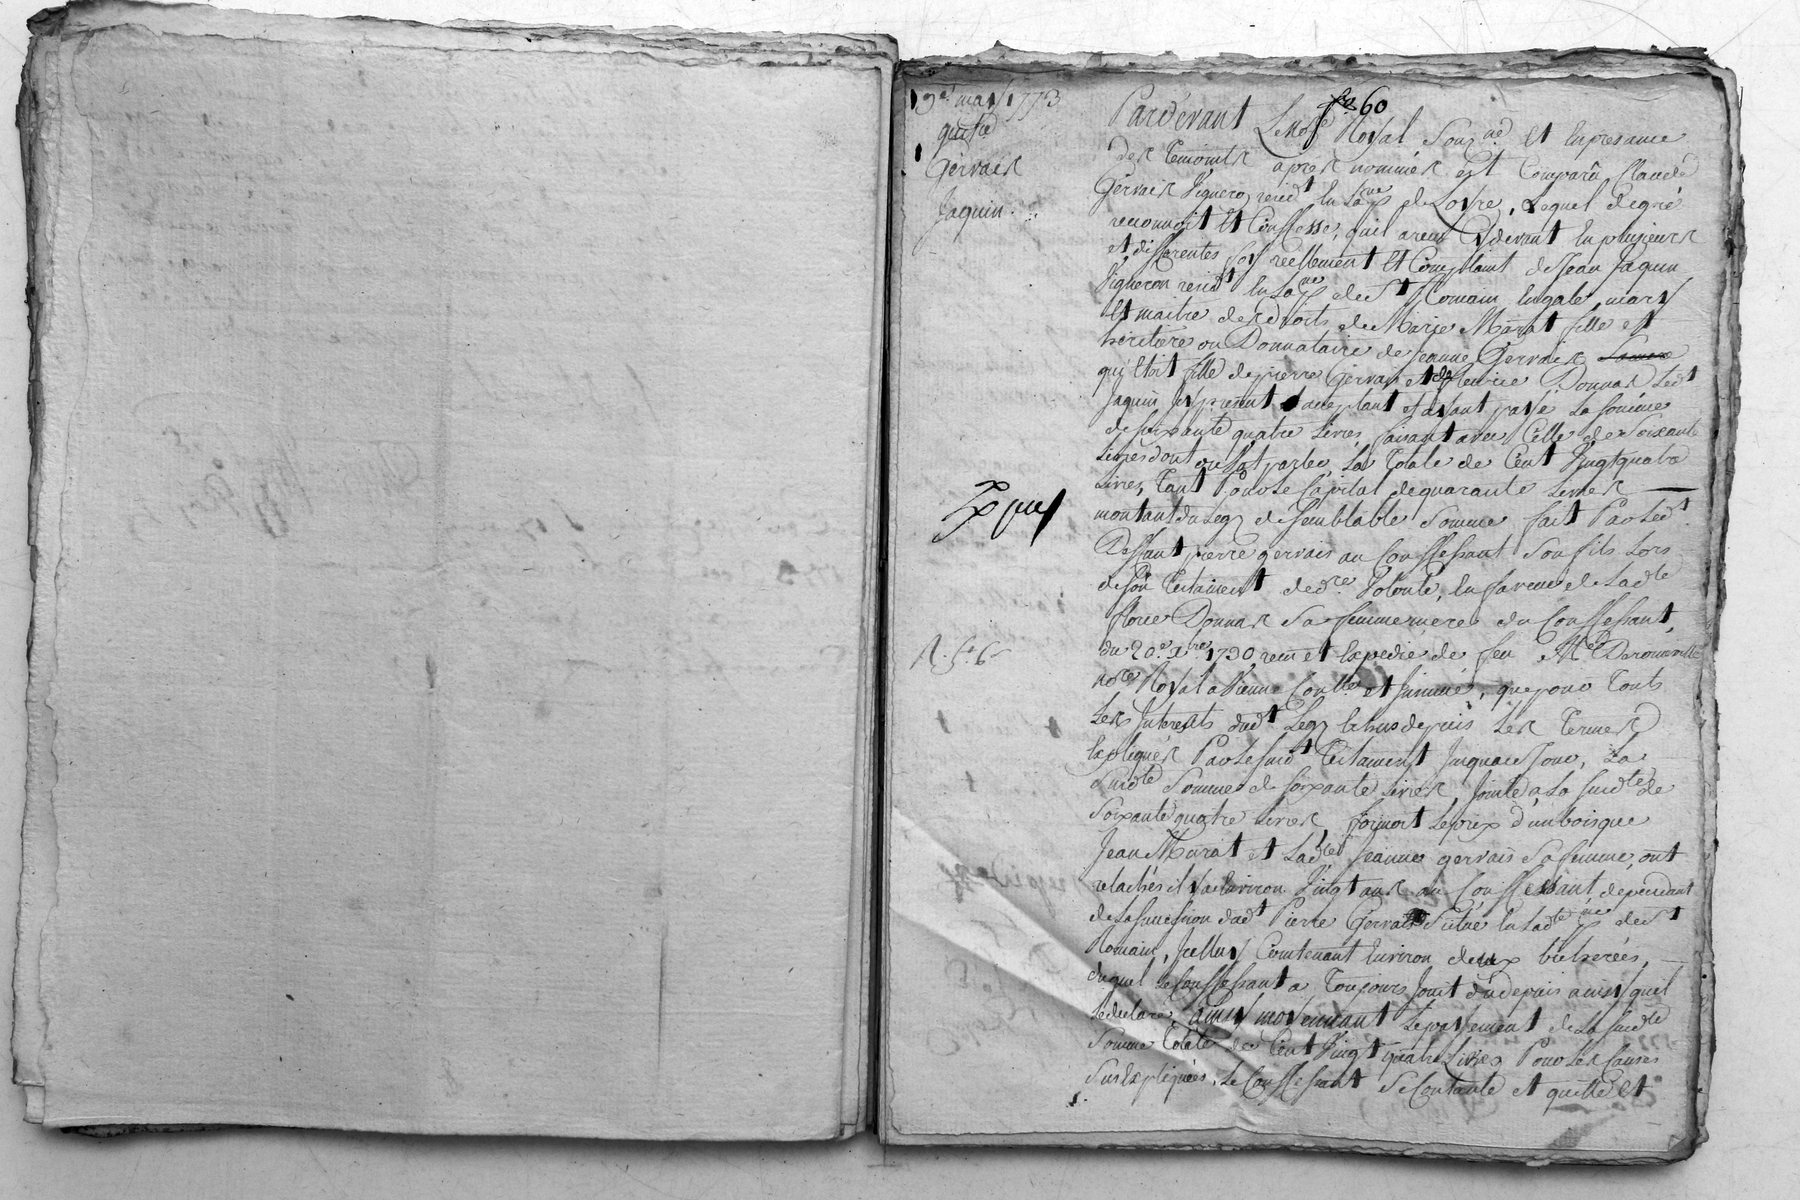 13e may 1773
quitce
Gervais
Jaquin
Expdié
R. 5s 6d
fo 60
Pardevant Le Nore Royal Sousné. Et En presance
des Temoints apres nommés est Comparû Claude
Gervais Vigneron reside En La psse de Loire, Lequel de gré
reconnoit Et Conffesse, quil a reçu Cy devant En plusieurs
et differentes fois reellement Et Comptant de Jean Jaquin
Vigneron residt En La psse de St Romain Engale, mary
Et maitre des droits de Marie Murat fille et
heritiere ou Donnataire de Jeanne Gervais
quy Etoit fille de pierre Gervais et de fleurie Donnas Ledt
Jaquin Jcy present acceptant et ayant payé La somme
de soixante quatre Livres, faisant avec Celle de Soixante
Livres dont on Est parlé, La Totale de Cent Vingt quatre
Livres, Tant Pour Le Capital de quarante Livres
montant du Legs de semblable Somme fait Par Ledt
Deffunt pierre gervais au Conffessant Son fils Lors
de son Testament de dre Volonté, En faveur de Ladte
fleurie Donnas Sa femme mere du Conffessant,
du 20e Xbre 1730, reçu et Expedié de feu Me
nore Royal a Vienne Conllé et Jnsinué, que pour Touts
Les Jnterets dudt Legs Echus depuis Les Termes
Expliqués Par Le susdt Testament Jusqua ce Jour, La
susdte Somme de soixante Livres, Jointe a La susdte de
Soixante quatre Livres, formoit Le prix d'un bois que
Jean Murat et Ladte Jeanne gervais Sa femme, ont
relachés il y a Environ Vingt ans au Conffessant, dependant
de La succession dudt Pierre Gervais Situé En Ladte psse de St
Romain, Jcelluy Contenant Environ deux bicherées,
duquel Le Conffessant a Toujours Jouit du depuis ainsy quil
Le declare, ainsy moyennant Le payement de La susdte
Somme Totale de Cent Vingt quatre Livres Pour Les Causes
Sus Expliquées, Le Conffessant Se Contante et quitte Et